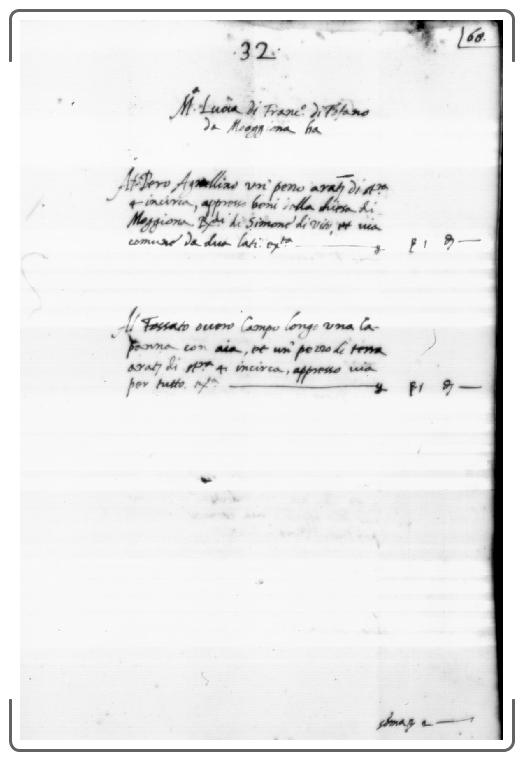 68.
32.
M.ª Lucia di Franc.º di Tofano
da Moggiona ha
Al Pero Agnellino un' pezzo arat. di st.ra
4 incirca, appresso beni della chiesa di
Moggiona Rede di Simone di Vito, et via
comune da dua lati. ext.a
Al Fossato overo Campo longo una Ca-
panna con aia, et un' pezzo di terra
arat. di st.ra 4 incirca, appresso via
per tutto. ext.a